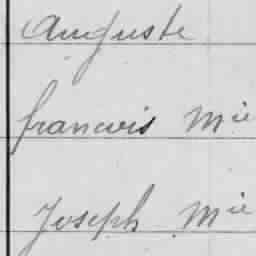 Auguste
francois Mie
Joseph Mie